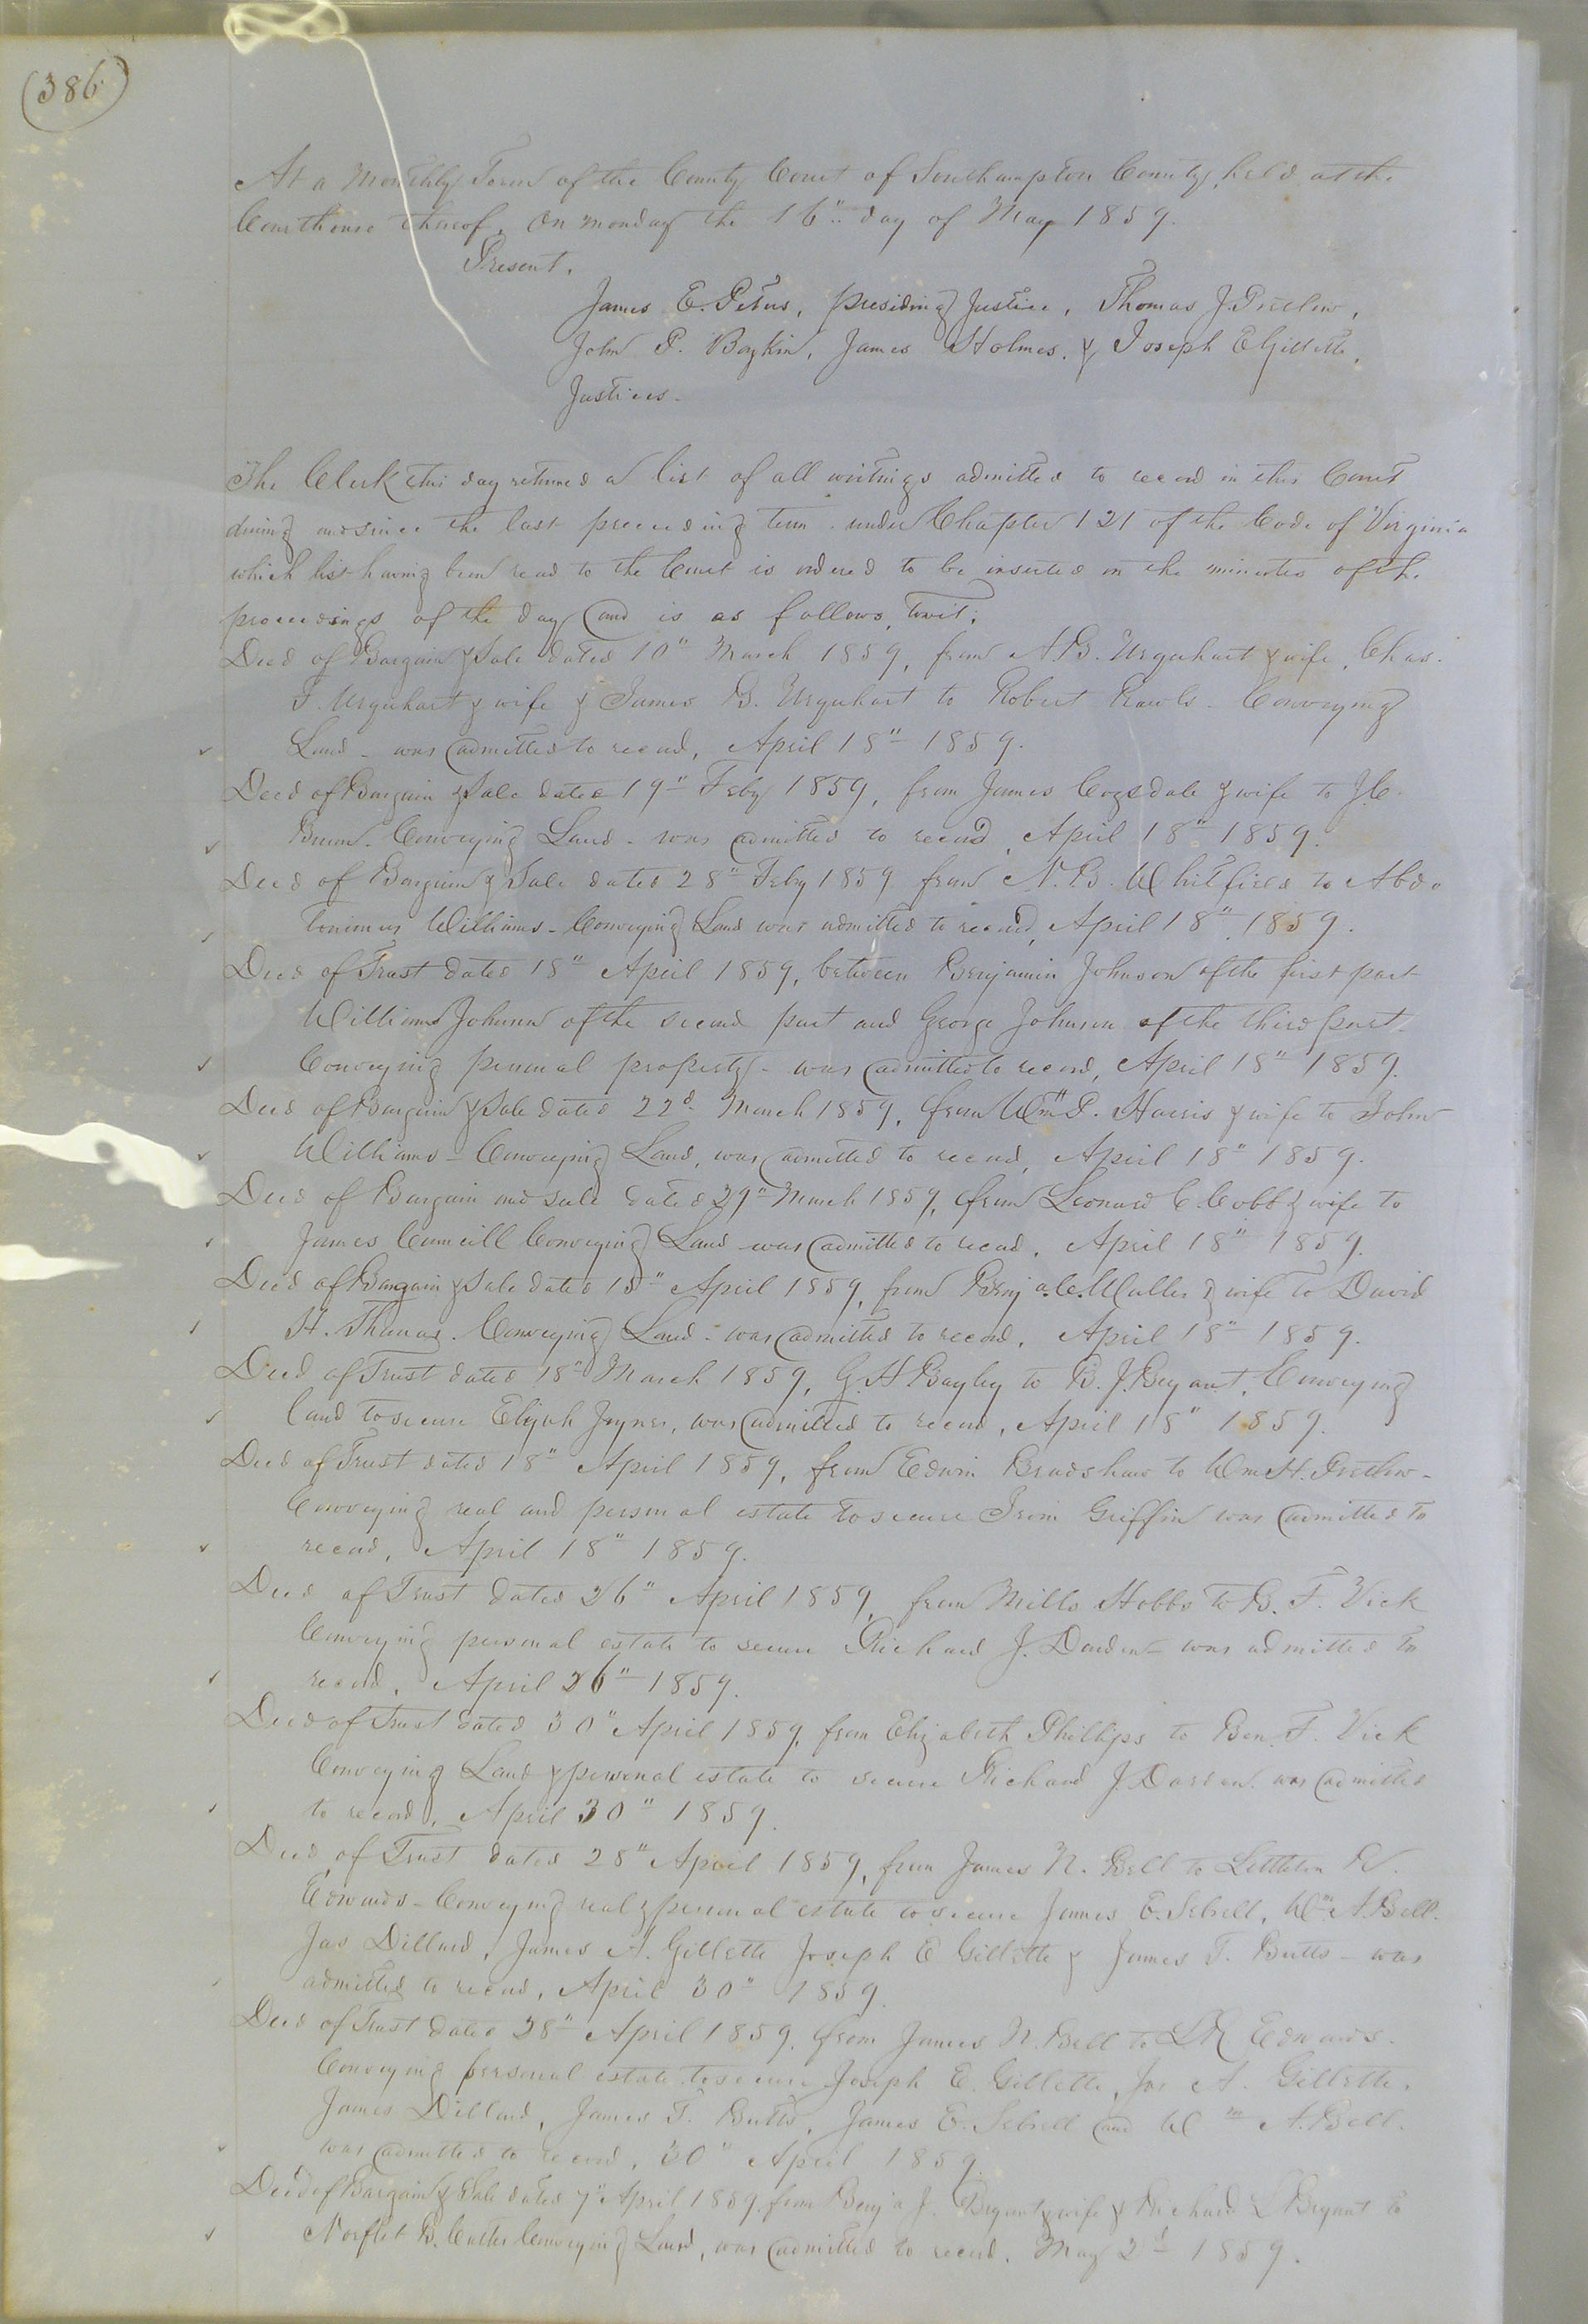 (386)
At a Monthly Term of the County Court of Southampton County, held at the
Courthouse thereof, On Monday the 16" day of May 1859.
Present.
James E. Peters, presiding Justice, Thomas J. Pretlow,
John P. Boykin, James Holmes, & Joseph E Gillette,
Justices.
The Clerk this day returned a list of all writings admitted to record in this Court
during and since the last preceeding term under Chapter 121 of the Code of Virginia
which list having been read to the Court is ordered to be inserted on the minutes of the
proceedings of the day and is as follows, towit:
Deed of Bargain & Sale dated 10" March 1859, from A.B. Urquhart & wife, Chas.
F. Urquhart & wife & James B. Urquhart to Robert Rawls. Conveying
Land - was admitted to record, April 18" 1859.
Deed of Bargain & Sale dated 19" Feby 1859, from James Cogsdale & wife to J.C.
Conveying Land - was admitted to record, April 18" 1859.
Deed of Bargain & Sale dated 28" Feby 1859 from N.B. Whitfield to Abdo
lonimus Williams - Conveying Land was admitted to record, April 18" 1859.
Deed of Trust dated 18" April 1859, between Benjamin Johnson of the first part
William Johnson of the second part and George Johnson of the third part
Conveying personal property - was admitted to record, April 18" 1859.
Deed of Bargain & Sale dated 22d March 1859, from Wm P. Harris & wife to John
Williams - Conveying Land, was admitted to record, April 18" 1859.
Deed of Bargain and sale dated 29" March 1859, from Leonard C. Cobb & wife to
James Councill Conveying Land was admitted to record, April 18" 1859.
Deed of Bargain & Sale dated 18" April 1859, from Benja. C. & wife to David
H. Thomas. Conveying Land - was admitted to record, April 18" 1859.
Deed of Trust dated 18" March 1859, G.H. Bayley to B.J. Bryant, Conveying
land to secure Elijah Joyner, was admitted to record, April 18" 1859.
Deed of Trust dated 18" April 1859, from Edwin Bradshaw to Wm H. Pretlow -
Conveying real and personal estate to secure Griffin was admitted to
record, April 18" 1859.
Deed of Trust dated 26" April 1859, from Mills Hobbs to B.F. Vick
Conveying personal estate to secure Richard J. Darden - was admitted to
record, April 26" 1859.
Deed of Trust dated 30" April 1859, from Elizabeth Phillips to Ben. F. Vick
Conveying Land & personal estate to secure Richard J. Darden was admitted
to record, April 30" 1859.
Deed of Trust dated 28" April 1859, from James N. Bell to Littleton R.
Edwards - Conveying real & personal estate to secure James E. Sebrell, Wm A. Bell.
Jas Dillard, James A. Gillette Joseph E Gillette & James T. Butts - was
admitted to record, April 30" 1859.
Deed of Trust dated 28" April 1859, from James N. Bell to LR Edwards.
Conveying personal estate to secure Joseph E. Gillette, Jas A. Gillette,
James Dillard, James T. Butts, James E. Sebrell and Wm A. Bell.
was admitted to record, 30" April 1859.
Deed of Bargain & Sale dated 7" April 1859, from Benja J. Bryant & wife & Richard L Bryant to
Norflet B. Conveying Land, was admitted to record, May 2d 1859.